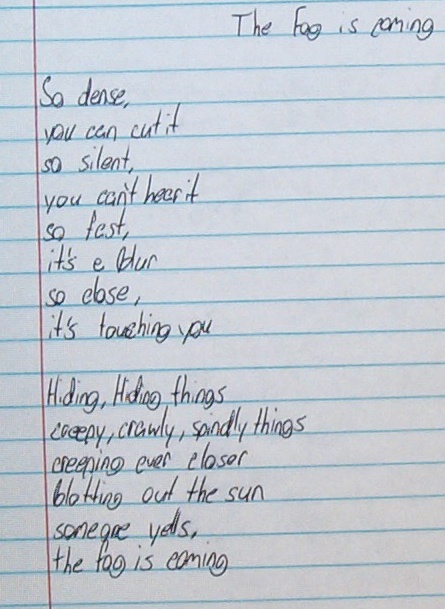 The Fog is coming
So dense,
you can cut it
so silent,
you can't hear it
so fast,
it's a blur
so close,
it's touching you
Hiding, Hiding things
creepy, crawly, spindly things
creeping ever closer
blotting out the sun
someone yells,
the fog is coming